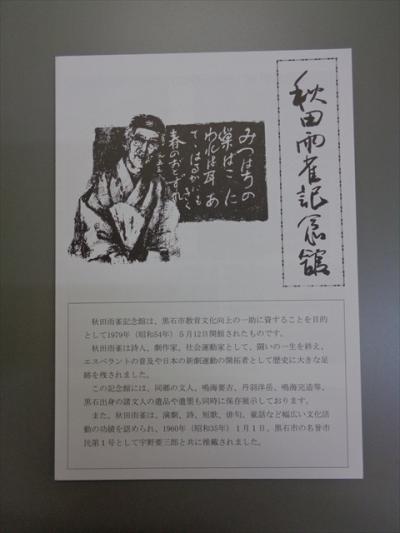 秋田雨雀記念館
みつはちの
巣はこに
われは耳あ
て、はるかにも
きく
春のおとずれ
秋田雨雀記念館は、黒石市教育文化向上の一助に資することを目的
として1979年（昭和54年）５月12日開館されたものです。
秋田雨雀は詩人、劇作家、社会運動家として、闘いの一生を終え、
エスペラントの普及や日本の新劇運動の開拓者として歴史に大きな足
跡を残されました。
この記念館には、同郷の文人、鳴海要吉、丹羽洋岳、鳴海完造等、
黒石出身の諸文人の遺品や遺墨も同時に保存展示しております。
また、秋田雨雀は、演劇、詩、短歌、俳句、童話など幅広い文化活
動の功績を認められ、1960年（昭和35年）１月１日、黒石市の名誉市
民第１号として宇野要三郎と共に推戴されました。